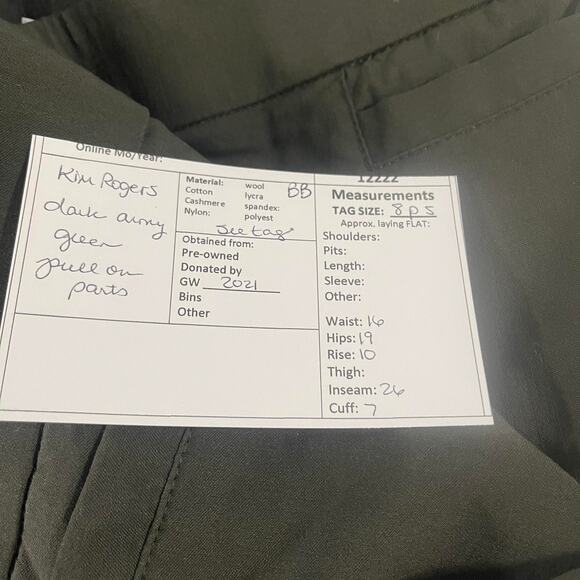 Online Mo/Year:
Kim Rogers
dark army
green
pull on
pants
Material: wool
Cotton lycra
Cashmere spandex:
Nylon: polyest
BB
See tag
Obtained from:
Pre-owned
Donated by
GW 2021
Bins
Other
12222
Measurements
TAG SIZE: 8ps
Approx. laying FLAT:
Shoulders:
Pits:
Length:
Sleeve:
Other:
Waist: 16
Hips: 19
Rise: 10
Thigh:
Inseam: 26
Cuff: 7